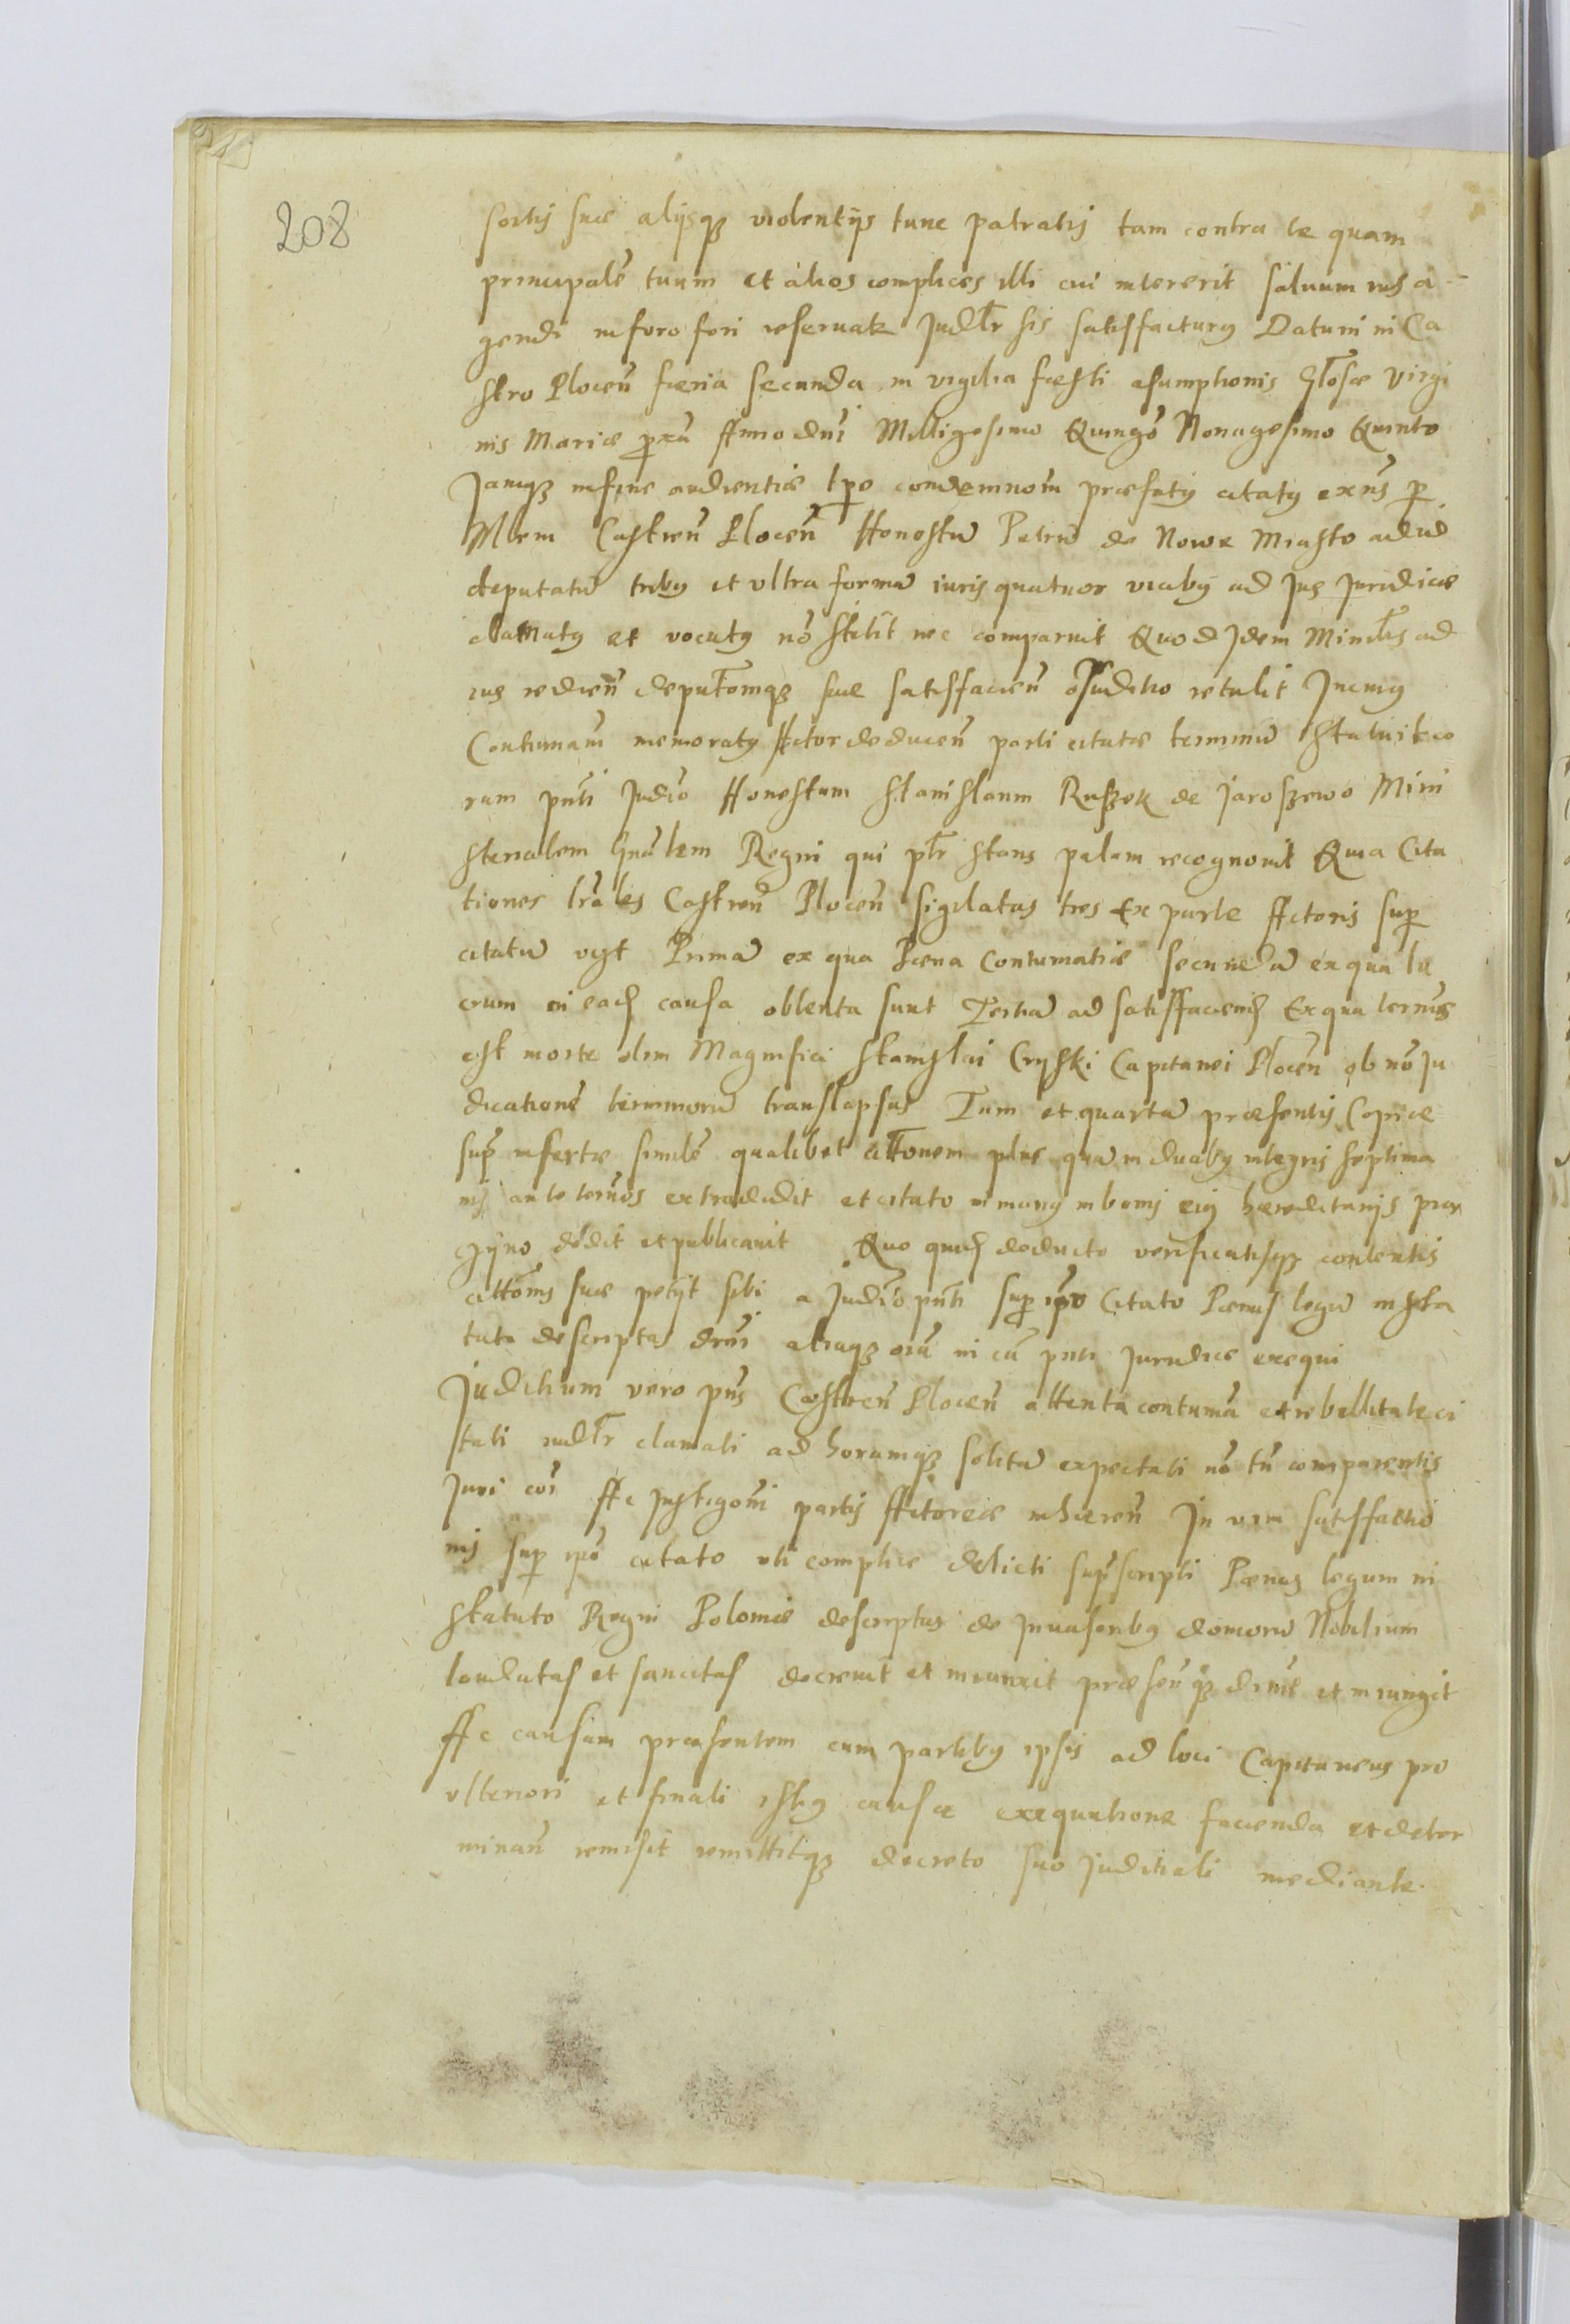 208
sortis suæ alijsq3 violentijs tunc patratis tam contra te quam
principalē tuum et alios complices illi cui intererit saluum ius a-
gendi in foro fori reseruatæ Judłr his satisfacturus Datum in Ca
stro Plocen̄ færia secunda in vigilia fæsti assumptionis Gło͞sæ Virgi
nis Mariæ p̱xā Anno dn̄i Milligesimo Quingō Nonagesimo Quinto
Jamq3 in fine audientiæ tp̱e condemnōm præfatus citatus ex n͞s p̱
Mlem Castren̄ Plocen̄ Honestū Petrū de Nowe Miasto ad id
deputatū tribus et vltra formā iuris quatuor vicibus ad Jus Juridice
clamatus et vocatus nō stetit nec comparuit Quod Idem Minłis ad
ius redien̄ deputōmq3 suæ satisfacien̄ Offitio retulit In cuius
Contumam memoratus Actor deducen̄ parti citatæ terminū statuit co
ram pn̄ti Judiō Honestum Stanislaum Ruszek de Jaroszewo Mini
sterialem Gn̄alem Regni qui płr stans palam recognouit Quia Cita
tiones lr̄ales Castren̄ Plocen̄ sigilatas tres Ex parte Actoris super
citatū vigt Primā ex qua Pœna Contumatiæ secundā ex qua lu
crum in ead causa obtenta sunt Tertiā ad satisfaciend Ex qua termīs
est morte olim Magnifici Stanislai Cryski Capitanei Plocen̄ ob nō Ju
dicationē terminorū translapsus Tum et quartā præsentis Copiæ
sup̱ insertæ similē qualibet citōnem plus quā in duabus integris septima
nis ante termōs extradidit et citato in manus in bonis eius hæreditarijs Prze
gyno dedit et publicauit Quo quid deducto verificatisq3 contentis
citōnis suæ petijt sibi a Judiō pn̄ti sup̱ ipo Citato Pœnas legū in sta
tuto descripta drn̄i aliaq3 oīa in cā pn̄ti Juridice exequi
Juditium vero pn̄s Castren̄ Plocen̄ attenta contumā et rebellitate ci
tati iudłr clamati ad horamq3 solitā expectati nō tn̄ comparentis
Juri cōi Ac Instigōni partis Actoreæ inhæren̄ In vim satisfactio
nis sup̱ ipō citato vti complice delicti sup̱scripti Pœnas legum in
Statuto Regni Poloniæ descriptas de Inuasoribus domorū Nobilium
laudatas et sancitas decreuit et iniunxit præsen̄q3 drn̄it et iniungit
Ac causam præsentem cum partibus ipsis ad loci Capitaneus pro
vlteriori et finali istius causæ exequutione facienda et deter
minan̄ remisit remittitq3 decreto suo Juditiali mediante.